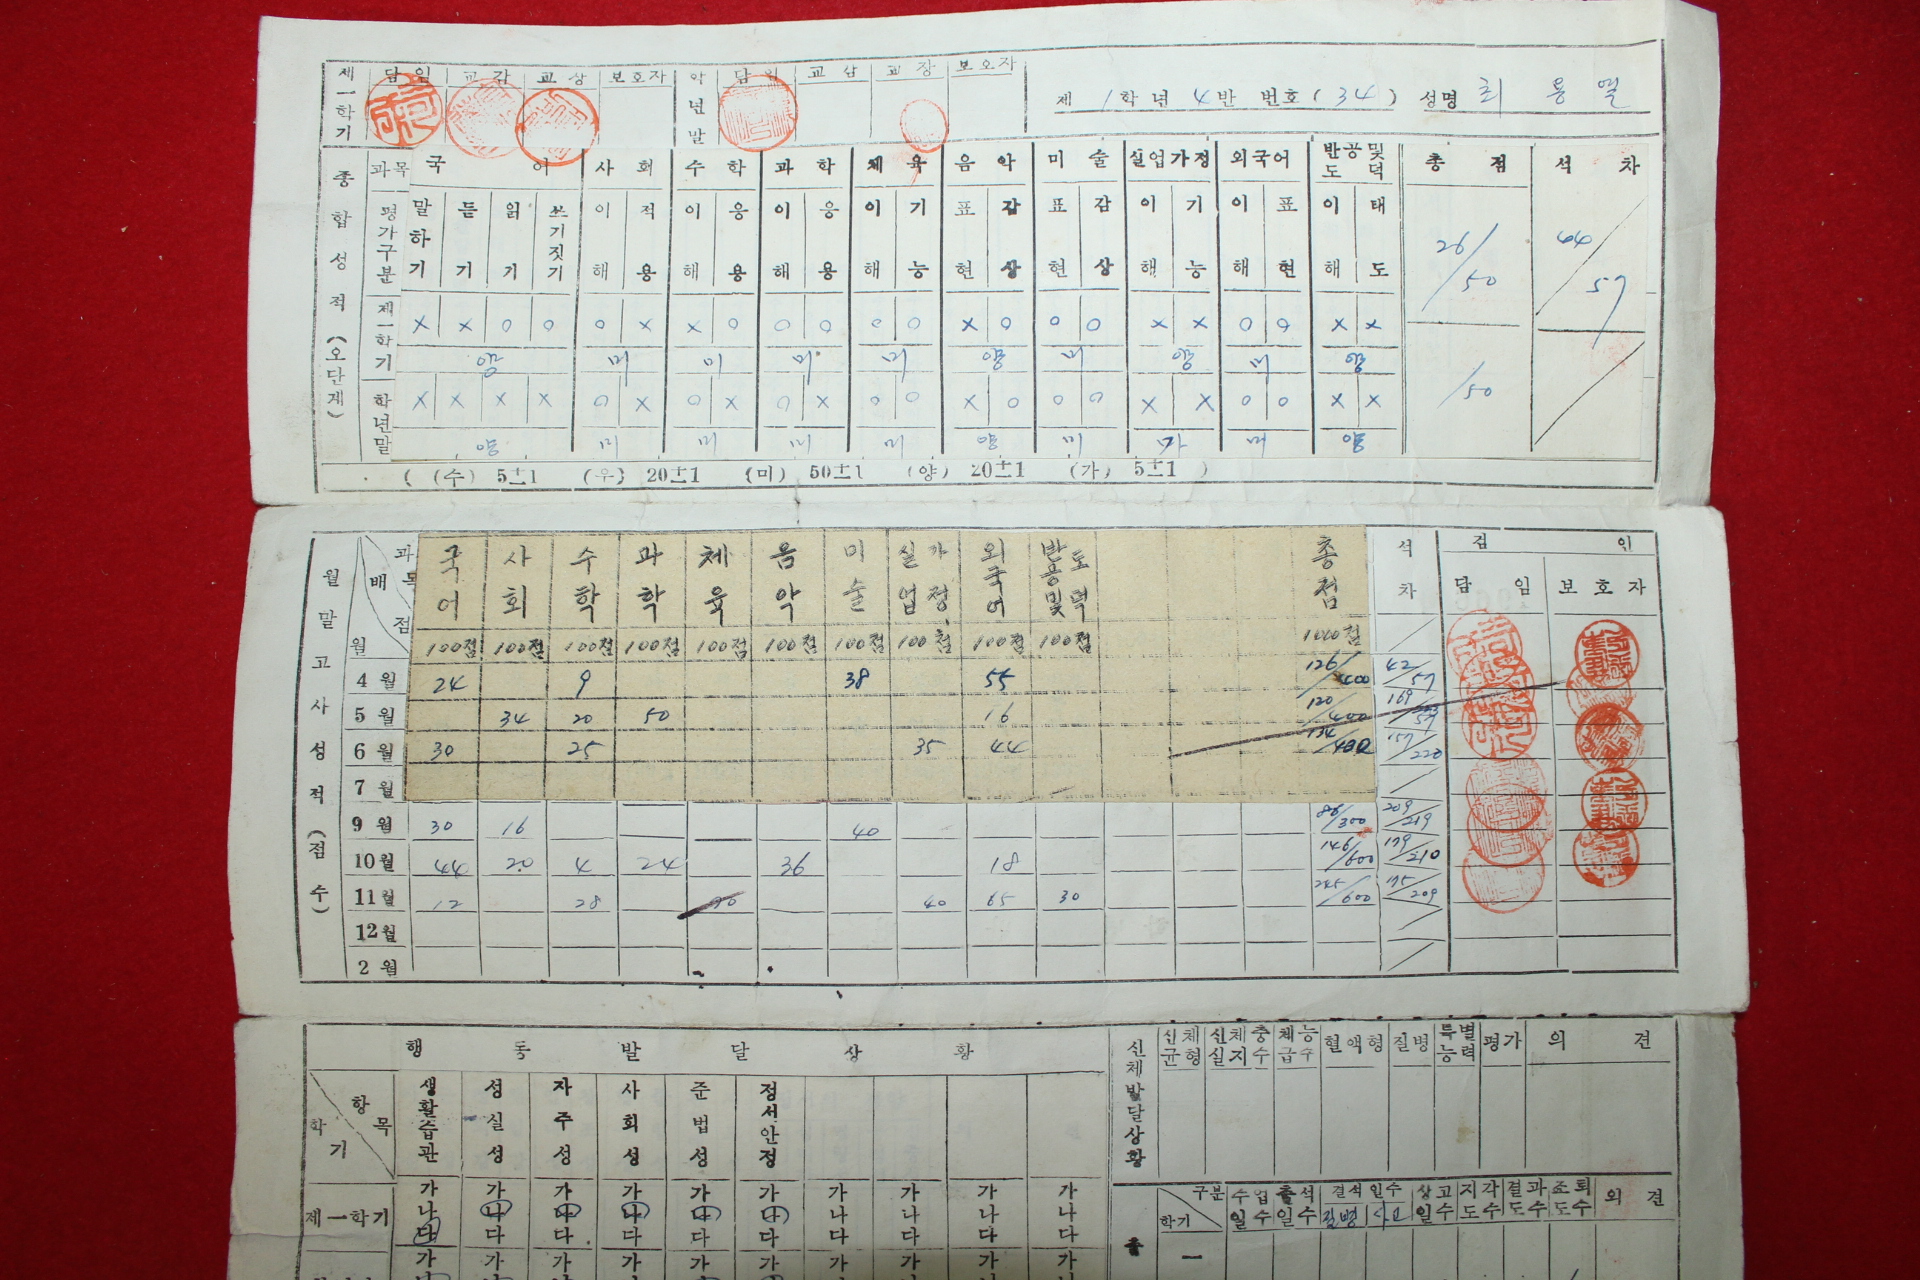 제一학기 담임 교감 교장 보호자 학년말 담임 교감 교장 보호자
제 1 학년 4 반 번호 ( 34 ) 성명 최 용 열
종합성적 (오단계)
과목 국어 사회 수학 과학 체육 음악 미술 실업가정 외국어 반공및도덕 총점 석차
평가구분 말하기 듣기 읽기 쓰기짓기 이해 적용 이해 응용 이해 응용 이해 기능 표현 감상 표현 감상 이해 기능 이해 표현 이해 태도
제一학기 × × ○ ○ ○ × × ○ ○ ○ ○ ○ × ○ ○ ○ × × ○ ○ × × 26/50 44/57
양 미 미 미 미 양 미 양 미 양
학년말 × × × × ○ × ○ × ○ × ○ ○ × ○ ○ ○ × × ○ ○ × × /50
양 미 미 미 미 양 미 가 미 양
( (수) 5±1 (우) 20±1 (미) 50±1 (양) 20±1 (가) 5±1 )
월말고사성적 (점수)
과목 배점 월 국어 사회 수학 과학 체육 음악 미술 실업 가정 외국어 반공및 도덕 총점 석차 검인
담임 보호자
100점 100점 100점 100점 100점 100점 100점 100점 100점 100점 1000점
4월 24 9 38 55 126/400 42/57
5월 34 20 50 16 120/400 169
6월 30 25 35 44 134/400 157/220
7월
9월 30 16 40 86/300 209/219
10월 44 20 4 24 36 18 146/600 179/210
11월 12 28 40 65 30 245/600 175/209
12월
2월
행동발달상황
항목 학기 생활습관 성실성 자주성 사회성 준법성 정서안정
제一학기 가나다 가나다 가나다 가나다 가나다 가나다 가나다 가나다 가나다 가나다
가 가 가 가 가 가 가 가 가 가
신체발달상황 신체균형 신체충실지수 체능급수 혈액형 질병 특별능력 평가 의견
구분 학기 수업일수 출석일수 결석일수 질병 사고 상고일수 지각도수 결과도수 조퇴도수 의견
출 一